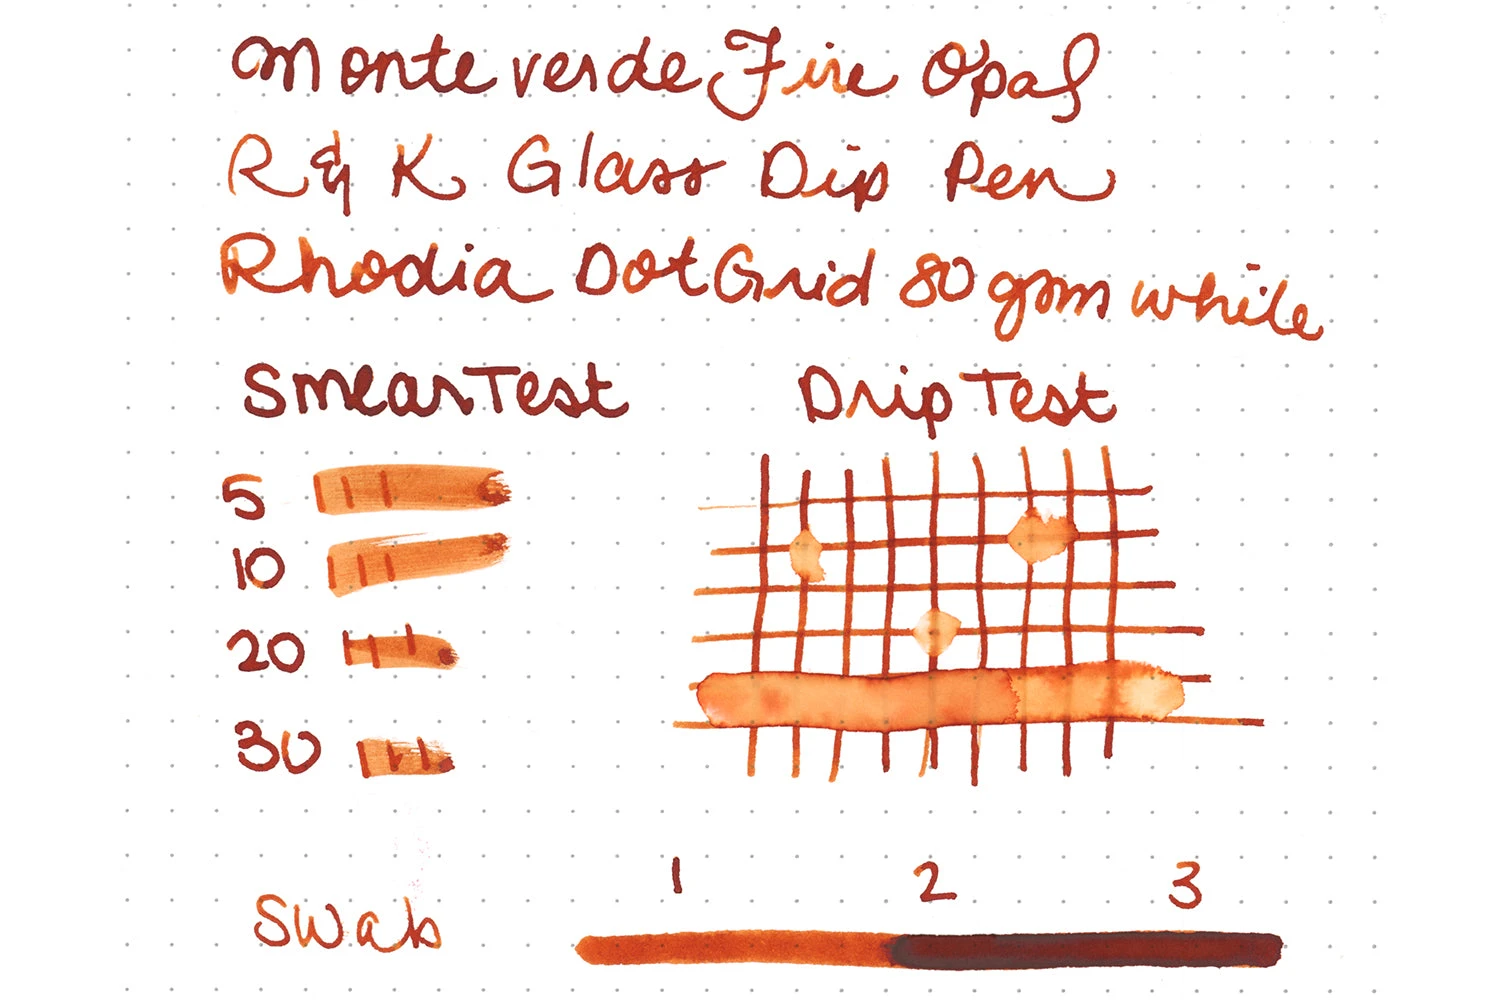 Monteverde Fire Opal
R & K Glass Dip Pen
Rhodia Dot Grid 80 gsm white
Smear Test Drip Test
5
10
20
30
1 2 3
Swab